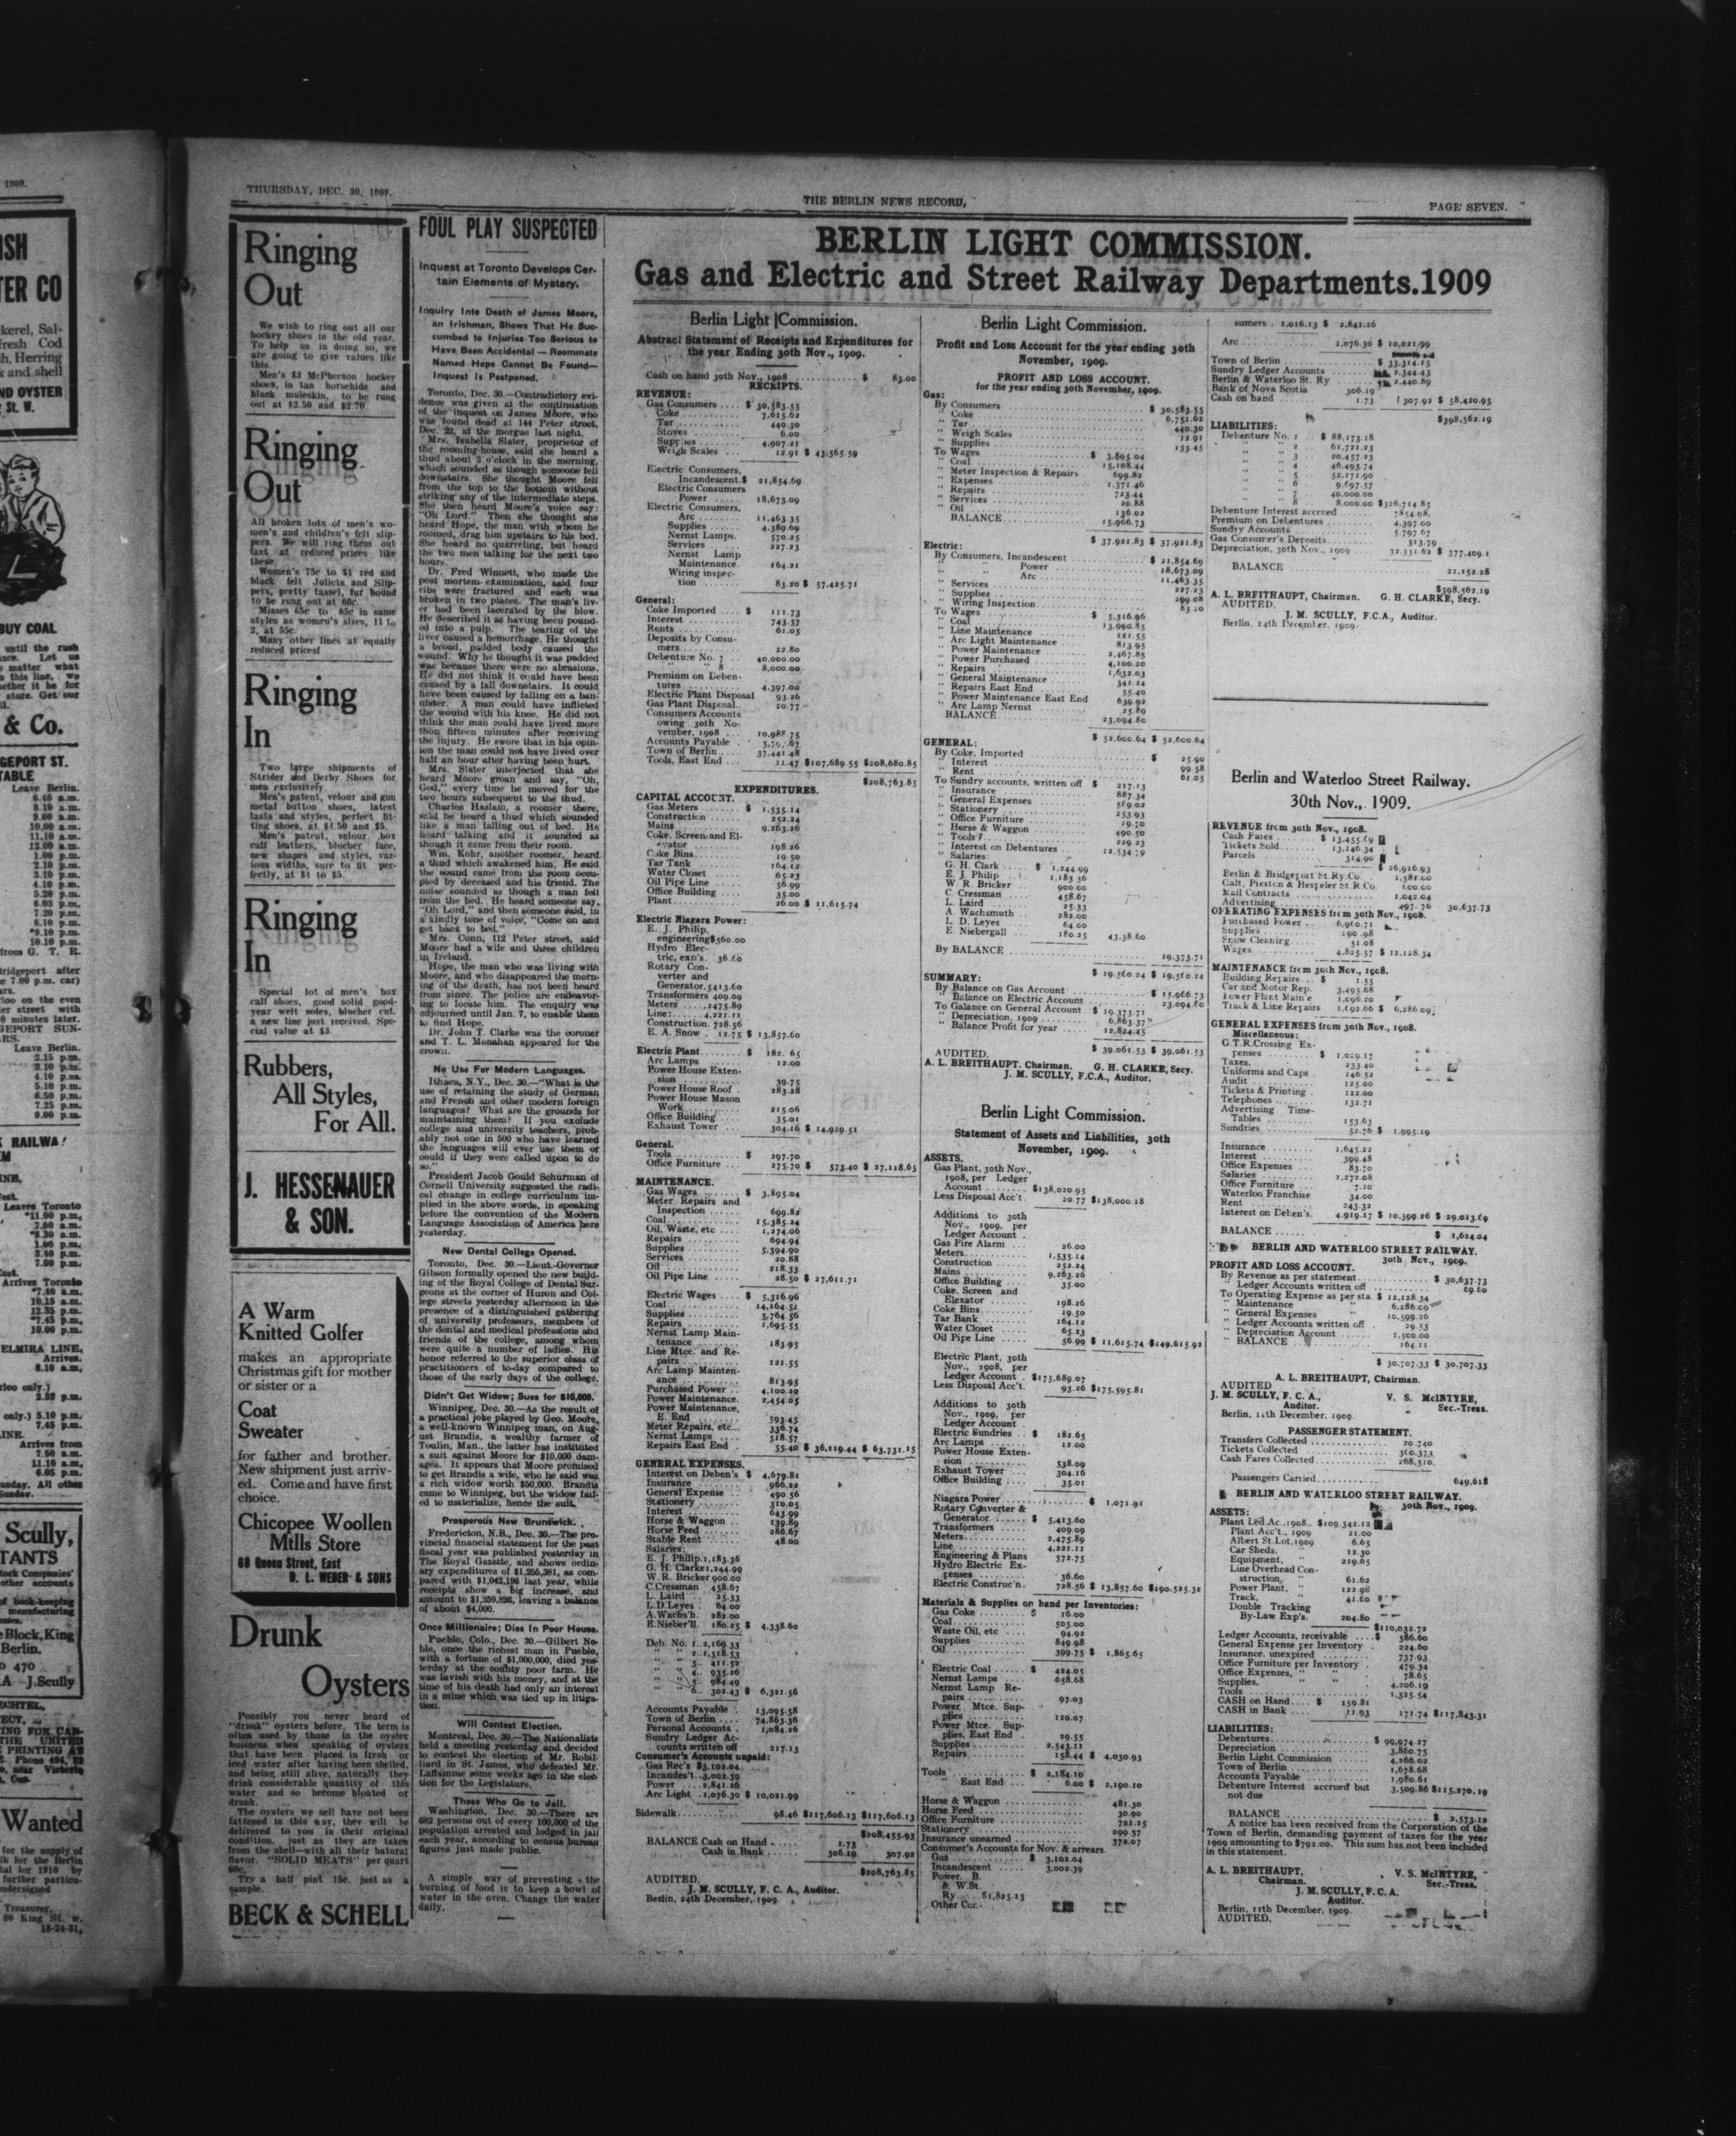 THURSDAY, DEC. 30, 1909.
THE BERLIN NEWS RECORD,
PAGE SEVEN.
Ringing
Out
We wish to ring out all our
hockey shoes in the old year.
To help us in doing so, we
are going to give values like
this.
Men's $3 McPherson hockey
shoes, in tan horsehide and
black muleskin, to be rung
out at $2.50 and $2.70
Ringing
Out
All broken lots of men's wo-
men's and children's felt slip-
pers. We will ring them out
fast at reduced prices like
these.
Women's 75c to $1 red and
black felt Juliets and Slip-
pers, pretty tassel, fur bound
to be rung out at 60c.
Misses 65c to 85c in same
styles as women's sizes, 11 to
2, at 55c.
Many other lines at equally
reduced prices!
Ringing
In
Two large shipments of
Strider and Derby Shoes for
men exclusively
Men's patent, velour and gun
metal button shoes, latest
lasts and styles, perfect fit-
ting shoes, at $4.50 and $5.
Men's patent, velour, box
calf leathers, blucher face,
new shapes and styles, var-
ious widths, sure to fit per-
fectly, at $4 to $5.
Ringing
In
Special lot of men's box
calf shoes, good solid good-
year welt soles, blucher cut.
a new line just received. Spe-
cial value at $3.
Rubbers,
All Styles,
For All.
J. HESSENAUER
& SON.
A Warm
Knitted Golfer
makes an appropriate
Christmas gift for mother
or sister or a
Coat
Sweater
for father and brother.
New shipment just arriv-
ed. Come and have first
choice.
Chicopee Woollen
Mills Store
68 Queen Street, East
D. L. WEBER & SONS
Drunk
Oysters
Possibly you never heard of
"drunk" oysters before. The term is
often used by those in the oyster
business when speaking of oysters
that have been placed in fresh or
iced water after having been shelled,
and being still alive, naturally they
drink considerable quantity of this
water and so become bloated or
drunk.
The oysters we sell have not been
fattened in this way, they will be
delivered to you in their original
condition, just as they are taken
from the shell—with all their natural
flavor. "SOLID MEATS" per quart
60c.
Try a half pint 15c. just as a
sample.
BECK & SCHELL
FOUL PLAY SUSPECTED
Inquest at Toronto Develops Cer-
tain Elements of Mystery.
Inquiry Into Death of James Moore,
an Irishman, Shows That He Suc-
cumbed to Injuries Too Serious to
Have Been Accidental — Roommate
Named Hope Cannot Be Found—
Inquest Is Postponed.
Toronto, Dec. 30.—Contradictory evi-
dence was given at the continuation
of the inquest on James Moore, who
was found dead at 144 Peter street,
Dec. 22, at the morgue last night.
Mrs. Isabella Slater, proprietor of
the rooming-house, said she heard a
thud about 3 o'clock in the morning,
which sounded as though someone fell
downstairs. She thought Moore fell
from the top to the bottom without
striking any of the intermediate steps.
She then heard Moore's voice say:
"Oh Lord." Then she thought she
heard Hope, the man with whom he
roomed, drag him upstairs to his bed.
She heard no quarreling, but heard
the two men talking for the next two
hours.
Dr. Fred Winnett, who made the
post mortem examination, said four
ribs were fractured and each was
broken in two places. The man's liv-
er had been lacerated by the blow.
He described it as having been pound-
ed into a pulp. The tearing of the
liver caused a hemorrhage. He thought
a broad, padded body caused the
wound. Why he thought it was padded
was because there were no abrasions.
He did not think it could have been
caused by a fall downstairs. It could
have been caused by falling on a ban-
nister. A man could have inflicted
the wound with his knee. He did not
think the man could have lived more
than fifteen minutes after receiving
the injury. He swore that in his opin-
ion the man could not have lived over
half an hour after having been hurt.
Mrs. Slater interjected that she
heard Moore groan and say, "Oh,
God," every time he moved for the
two hours subsequent to the thud.
Charles Haslam, a roomer there,
said he heard a thud which sounded
like a man falling out of bed. He
heard talking and it sounded as
though it came from their room.
Wm. Kohr, another roomer, heard
a thud which awakened him. He said
the sound came from the room occu-
pied by deceased and his friend. The
noise sounded as though a man fell
from the bed. He heard someone say,
"Oh Lord," and then someone said, in
a kindly tone of voice, "Come on and
get back to bed."
Mrs. Conn, 112 Peter street, said
Moore had a wife and three children
in Ireland.
Hope, the man who was living with
Moore, and who disappeared the morn-
ing of the death, has not been heard
from since. The police are endeavor-
ing to locate him. The enquiry was
adjourned until Jan. 7, to enable them
to find Hope.
Dr. John T. Clarke was the coroner
and T. L. Monahan appeared for the
crown.
No Use For Modern Languages.
Ithaca, N.Y., Dec. 30.—"What is the
use of retaining the study of German
and French and other modern foreign
languages? What are the grounds for
maintaining them? If you exclude
college and university teachers, prob-
ably not one in 500 who have learned
the languages will ever use them or
could if they were called upon to do
so."
President Jacob Gould Schurman of
Cornell University suggested the radi-
cal change in college curriculum im-
plied in the above words, in speaking
before the convention of the Modern
Language Association of America here
yesterday.
New Dental College Opened.
Toronto, Dec. 30.—Lieut.-Governor
Gibson formally opened the new build-
ing of the Royal College of Dental Sur-
geons at the corner of Huron and Col-
lege streets yesterday afternoon in the
presence of a distinguished gathering
of university professors, members of
the dental and medical professions and
friends of the college, among whom
were quite a number of ladies. His
honor referred to the superior class of
practitioners of to-day compared to
those of the early days of the college.
Didn't Get Widow; Sues for $10,000.
Winnipeg, Dec. 30.—As the result of
a practical joke played by Geo. Moore,
a well-known Winnipeg man, on Aug-
ust Brandis, a wealthy farmer of
Toulin, Man., the latter has instituted
a suit against Moore for $10,000 dam-
ages. It appears that Moore promised
to get Brandis a wife, who he said was
a rich widow worth $50,000. Brandis
came to Winnipeg, but the widow fail-
ed to materialize, hence the suit.
Prosperous New Brunswick.
Fredericton, N.B., Dec. 30.—The pro-
vincial financial statement for the past
fiscal year was published yesterday in
The Royal Gazette, and shows ordin-
ary expenditures of $1,255,381, as com-
pared with $1,042,196 last year, while
receipts show a big increase, and
amount to $1,259,826, leaving a balance
of about $4,000.
Once Millionaire; Dies In Poor House.
Pueblo, Colo., Dec. 30.—Gilbert No-
ble, once the richest man in Pueblo,
with a fortune of $1,000,000, died yes-
terday at the county poor farm. He
was lavish with his money, and at the
time of his death had only an interest
in a mine which was tied up in litiga-
tion.
Will Contest Election.
Montreal, Dec. 30.—The Nationalists
held a meeting yesterday and decided
to contest the election of Mr. Robil-
liard in St. James, who defeated Mr.
Laflamme some weeks ago in the elec-
tion for the Legislature.
Those Who Go to Jail.
Washington, Dec. 30.—There are
682 persons out of every 100,000 of the
population arrested and lodged in jail
each year, according to census bureau
figures just made public.
A simple way of preventing the
burning of food is to keep a bowl of
water in the oven. Change the water
daily.
BERLIN LIGHT COMMISSION.
Gas and Electric and Street Railway Departments.1909
Berlin Light Commission.
Abstract Statement of Receipts and Expenditures for
the year Ending 30th Nov., 1909.
Cash on hand 30th Nov., 1908 $ 83.00
RECEIPTS.
REVENUE:
Gas Consumers $ 30,583.55
Coke 7,615.62
Tar 440.30
Stoves 6.00
Supplies 4,907.21
Weigh Scales 12.91 $ 43,565.59
Electric Consumers,
Incandescent.$ 21,854.69
Electric Consumers
Power 18,673.09
Electric Consumers,
Arc 11,463.35
Supplies 4,389.69
Nernst Lamps. 570.25
Services 227.23
Nernst Lamp
Maintenance. 164.21
Wiring inspec-
tion 83.20 $ 57,425.71
General:
Coke Imported $ 111.73
Interest 743.57
Rents 61.05
Deposits by Consu-
mers 22.80
Debenture No. 7 40,000.00
" " 8 8,000.00
Premium on Deben-
tures 4,397.00
Electric Plant Disposal 93.26
Gas Plant Disposal.. 20.77
Consumers Accounts
owing 30th No-
vember, 1908 10,988.75
Accounts Payable 5,797.67
Town of Berlin 37,441.48
Tools, East End 11.47 $107,689.55 $208,680.85
$208,763.85
EXPENDITURES.
CAPITAL ACCOUNT.
Gas Meters $ 1,535.14
Construction 252.24
Mains 9,263.26
Coke. Screen and El-
evator 198.26
Coke Bins 19.50
Tar Tank 164.12
Water Closet 65.23
Oil Pipe Line 56.99
Office Building 35.00
Plant 26.00 $ 11,615.74
Electric Niagara Power:
E. J. Philip,
engineering$560.00
Hydro Elec-
tric, exn's. 36.60
Rotary Con-
verter and
Generator.5413.60
Transformers 409.09
Meters 2475.89
Line 4,221.11
Construction. 728.56
E. A. Snow 12.75 $ 13,857.60
Electric Plant $ 182.65
Arc Lamps 12.00
Power House Exten-
sion 39.75
Power House Roof 283.28
Power House Mason
Work 215.06
Office Building 35.01
Exhaust Tower 304.16 $ 14,929.51
General.
Tools $ 297.70
Office Furniture 275.70 $ 573.40 $ 27,118.65
MAINTENANCE.
Gas Wages $ 3,895.04
Meter Repairs and
Inspection 699.82
Coal 15,385.24
Oil, Waste, etc 1,274.00
Repairs 694.94
Supplies 5,394.90
Services 20.88
Oil 218.33
Oil Pipe Line 28.50 $ 27,611.71
Electric Wages $ 5,316.96
Coal 14,164.51
Supplies 5,764.56
Repairs 1,695.55
Nernst Lamp Main-
tenance 183.95
Line Mtce. and Re-
pairs 121.55
Arc Lamp Mainten-
ance 813.95
Purchased Power 4,100.20
Power Maintenance. 2,454.05
Power Maintenance,
E. End 593.45
Meter Repairs, etc... 336.74
Nernst Lamps 518.57
Repairs East End 55.40 $ 36,119.44 $ 63,731.15
GENERAL EXPENSES.
Interest on Deben's $ 4,679.81
Insurance 966.22
General Expense 490.56
Stationery 310.05
Interest 643.99
Horse & Waggon 139.89
Horse Feed 286.67
Stable Rent 48.00
Salaries:
E. J. Philip.1,183.36
G. H. Clarke1,244.99
W. R. Bricker 900.00
C.Cressman 458.67
L. Laird 25.33
L.D.Leyes 64.00
A.Wachs'h. 282.00
E.Nieber'll 180.25 $ 4,338.60
Deb. No. 1..2,169.33
" " 2..1,518.53
" " 3.. 411.52
" " 4.. 935.26
" " 5.. 984.49
" " 6.. 302.43 $ 6,321.56
Accounts Payable 13,095.58
Town of Berlin 74,863.36
Personal Accounts 1,084.26
Sundry Ledger Ac-
counts written off 217.13
Consumer's Accounts unpaid:
Gas Rec's $3,102.04
Incandes't..3,002.39
Power 2,841.26
Arc Light .1,076.30 $ 10,021.99
Sidewalk 98.46 $117,606.13 $117,606.13
$208,455.93
BALANCE Cash on Hand 1.73
Cash in Bank 306.19 307.92
$208,763.85
AUDITED.
J. M. SCULLY, F. C. A., Auditor.
Berlin, 24th December, 1909.
Berlin Light Commission.
Profit and Loss Account for the year ending 30th
November, 1909.
PROFIT AND LOSS ACCOUNT.
for the year ending 30th November, 1909.
Gas:
By Consumers $ 30,583.55
" Coke 6,751.62
" Tar 440.30
" Weigh Scales 12.91
" Supplies 133.45
To Wages $ 3,895.04
" Coal 15,108.44
" Meter Inspection & Repairs 699.82
" Expenses 1,371.46
" Repairs 723.44
" Services 20.88
" Oil 136.02
BALANCE 15,966.73
$ 37,921.83 $ 37,921.83
Electric:
By Consumers, Incandescent $ 21,854.69
" " Power 18,673.09
" " Arc 11,463.35
" Services 227.23
" Supplies 299.08
" Wiring Inspection 83.20
To Wages $ 5,316.96
" Coal 13,990.85
" Line Maintenance 121.55
" Arc Light Maintenance 813.95
" Power Maintenance 2,467.85
" Power Purchased 4,100.20
" Repairs 1,632.03
" General Maintenance 341.24
" Repairs East End 55.40
" Power Maintenance East End 639.92
" Arc Lamp Nernst 25.89
BALANCE 23,094.80
$ 52,600.64 $ 52,600.64
GENERAL:
By Coke, Imported $ 25.90
" Interest 99.58
" Rent 61.05
To Sundry accounts, written off $ 217.13
" Insurance 887.34
" General Expenses 589.02
" Stationery 253.93
" Office Furniture 19.70
" Horse & Waggon 490.50
" Tools 229.23
" Interest on Debentures 12,534.79
" Salaries:
G. H. Clark $ 1,244.99
E. J. Philip 1,183.36
W. R. Bricker 900.00
C. Cressman 458.67
L. Laird 25.33
A. Wachsmuth 282.00
L. D. Leyes 64.00
E. Niebergall 180.25 43,38.60
By BALANCE 19,373.71
$ 19,560.24 $ 19,560.24
SUMMARY:
By Balance on Gas Account $ 15,966.73
" Balance on Electric Account 23,094.80
To Galance on General Account $ 19,373.71
" Depreciation, 1909 6,863.37
" Balance Profit for year 12,824.45
$ 39,061.53 $ 39,061.53
AUDITED.
A. L. BREITHAUPT, Chairman. G. H. CLARKE, Secy.
J. M. SCULLY, F.C.A., Auditor.
Berlin Light Commission.
Statement of Assets and Liabilities, 30th
November, 1909.
ASSETS.
Gas Plant, 30th Nov.,
1908, per Ledger
Account $138,020.95
Less Disposal Acc't. 20.77 $138,000.18
Additions to 30th
Nov., 1909, per
Ledger Account
Gas Fire Alarm 26.00
Meters 1,535.14
Construction 252.24
Mains 9,263.26
Office Building 35.00
Coke. Screen and
Elexator 198.26
Coke Bins 19.50
Tar Bank 164.12
Water Closet 65.23
Oil Pipe Line 56.99 $ 11,615.74 $149,615.92
Electric Plant, 30th
Nov., 1908, per
Ledger Account $175,689.07
Less Disposal Acc't. 93.26 $175,595.81
Additions to 30th
Nov., 1909, per
Ledger Account
Electric Sundries $ 182.65
Arc Lamps 12.00
Power House Exten-
sion 538.09
Exhaust Tower 304.16
Office Building 35.01
Niagara Power $ 1,071.91
Rotary Converter &
Generator $ 5,413.60
Transformers 409.09
Meters 2,475.89
Line 4,221.11
Engineering & Plans 572.75
Hydro Electric Ex-
penses 36.60
Electric Construc'n. 728.56 $ 13,857.60 $190,525.32
Materials & Supplies on hand per Inventories:
Gas Coke $ 16.00
Coal 505.00
Waste Oil, etc 94.92
Supplies 849.98
Oil 399.75 $ 1,865.65
Electric Coal $ 424.05
Nernst Lamps 658.68
Nernst Lamp Re-
pairs 97.03
Power Mtce. Sup-
plies 120.07
Power Mtce. Sup-
plies, East End 29.55
Supplies 2,543.11
Repairs 158.44 $ 4,030.93
Tools $ 2,184.10
" East End 6.00 $ 2,190.10
Horse & Waggon 481.30
Horse Feed 30.90
Office Furniture 721.25
Stationery 299.37
Insurance unearned 372.07
Consumer's Accounts for Nov. & arrears.
Gas $ 3,102.04
Incandescent 3,002.39
Power. B.
& W.St.
Ry. $1,825.13
Other Con-
sumers . 1,016.13 $ 2,841.26
Arc 1,076.30 $ 10,021.99
Town of Berlin $ 33,314.15
Sundry Ledger Accounts 2,344.43
Berlin & Waterloo St. Ry 2,440.89
Bank of Nova Scotia 306.19
Cash on hand 1.73 $ 307.92 $ 58,420.95
$398,562.19
LIABILITIES:
Debenture No. 1 $ 88,173.18
" " 2 61,721.23
" " 3 20,457.23
" " 4 46,493.74
" " 5 52,171.90
" " 6 9,697.57
" " 7 40,000.00
" " 8 8,000.00 $326,714.85
Debenture Interest accrued 7854.98
Premium on Debentures 4,397.00
Sundry Accounts 5,797.67
Gas Consumer's Deposits 313.79
Depreciation, 30th Nov., 1909 32,331.62 $ 377,409.1
BALANCE 21,152.28
$398,562.19
A. L. BREITHAUPT, Chairman. G. H. CLARKE, Secy.
AUDITED.
J. M. SCULLY, F.C.A., Auditor.
Berlin, 24th December, 1909.
Berlin and Waterloo Street Railway.
30th Nov., 1909.
REVENUE from 30th Nov., 1908.
Cash Fares $ 13,455.69
Tickets Sold 13,146.34
Parcels 314.90
$ 26,916.93
Berlin & Bridgeport St.Ry.Co. 1,581.00
Galt, Preston & Hespeler St.R.Co. 600.00
Mail Contracts 1,042.04
Advertising 497.76 30,637.73
OPERATING EXPENSES from 30th Nov., 1908.
Purchased Power 6,960.71
Supplies 290.98
Snow Cleaning 51.08
Wages 4,825.57 $ 12,128.34
MAINTENANCE from 30th Nov., 1908.
Building Repairs $ 1.55
Car and Motor Rep. 3,495.68
Power Plant Main'e 1,096.20
Track & Line Repairs 1,692.66 $ 6,286.09
GENERAL EXPENSES from 30th Nov., 1908.
Miscellaneous:
G.T.R.Crossing Ex-
penses $ 1,029.17
Taxes 233.40
Uniforms and Caps 146.52
Audit 125.00
Tickets & Printing 122.00
Telephones 132.71
Advertising Time-
Tables 153.63
Sundries 52.76 $ 1,995.19
Insurance 1,645.22
Interest 399.48
Office Expenses 83.70
Salaries 1,272.08
Office Furniture 7.10
Waterloo Franchise 34.00
Rent 243.32
Interest on Deben's. 4,919.17 $ 10,599.26 $ 29,013.69
BALANCE $ 1,624.04
BERLIN AND WATERLOO STREET RAILWAY.
30th Nov., 1909.
PROFIT AND LOSS ACCOUNT.
By Revenue as per statement $ 30,637.73
" Ledger Accounts written off 69.60
To Operating Expense as per sta. $ 12,128.34
" Maintenance " 6,286.09
" General Expenses " 10,599.26
" Ledger Accounts written off 29.53
" Depreciation Account 1,500.00
" BALANCE 164.11
$ 30,707.33 $ 30,707.33
A. L. BREITHAUPT, Chairman.
AUDITED
J. M. SCULLY, F. C. A., V. S. McINTYRE,
Auditor. Sec.-Treas.
Berlin, 11th December, 1909
PASSENGER STATEMENT.
Transfers Collected 20,740
Tickets Collected 360,373
Cash Fares Collected 268,510
Passengers Carried 649,618
BERLIN AND WATERLOO STREET RAILWAY.
30th Nov., 1909.
ASSETS:
Plant Led.Ac.,1908.. $109,342.12
Plant Acc't., 1909 21.00
Albert St.Lot,1909 6.65
Car Sheds, 12.30
Equipment, " 219.65
Line Overhead Con-
struction, " 61.62
Power Plant, " 122.98
Track, " 41.60
Double Tracking
By-Law Exp's. 204.80
$110,032.72
Ledger Accounts, receivable $ 586.60
General Expense per Inventory 224.60
Insurance, unexpired 737.93
Office Furniture per Inventory 479.34
Office Expenses, " " 78.65
Supplies, " " 4,206.19
Tools 1,325.54
CASH on Hand $ 159.81
CASH in Bank 11.93 171.74 $117,843.31
LIABILITIES:
Debentures $ 99,974.27
Depreciation 3,860.75
Berlin Light Commission 4,266.02
Town of Berlin 1,678.68
Accounts Payable 1,980.61
Debenture Interest accrued but
not due 3,509.86 $115,270.19
BALANCE $ 2,573.12
A notice has been received from the Corporation of the
Town of Berlin, demanding payment of taxes for the year
1909 amounting to $792.00. This sum has not been included
in this statement.
A. L. BREITHAUPT, V. S. McINTYRE,
Chairman. Sec.-Treas.
J. M. SCULLY, F.C.A.
Auditor.
Berlin, 11th December, 1909.
AUDITED.